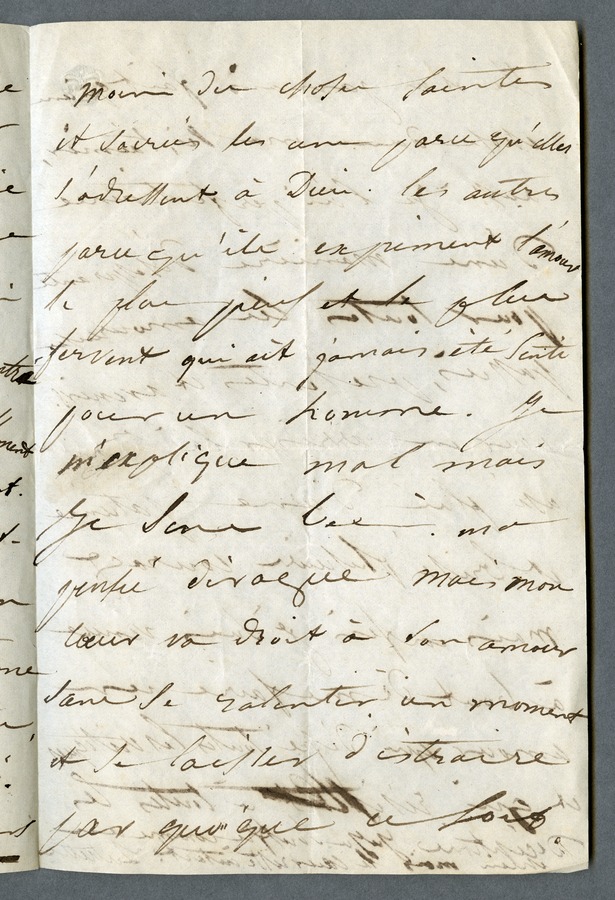 moins des choses saintes
et sacrées les unes parce qu'elles
s'adressent à Dieu. les autres
parce qu'ils expriment l'amour
le plus pur et le plus
fervent qui ait jamais été senti
pour un homme. Je
m'explique mal mais
Je sens ma
pensée divague mais mon
cœur va droit à son amour
sans se ralentir un moment
et se laisser distraire
par quoi que ce soit